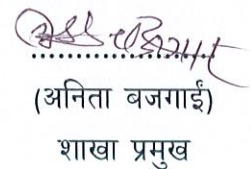 (अनिता बजगाईं)
शाखा प्रमुख